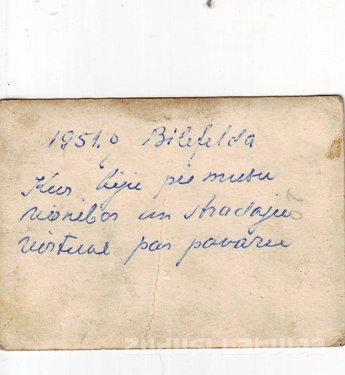 1951.g Bilefelda
Kur bija pie mūsu
vienības un strādāju
virtuvē par pavāru